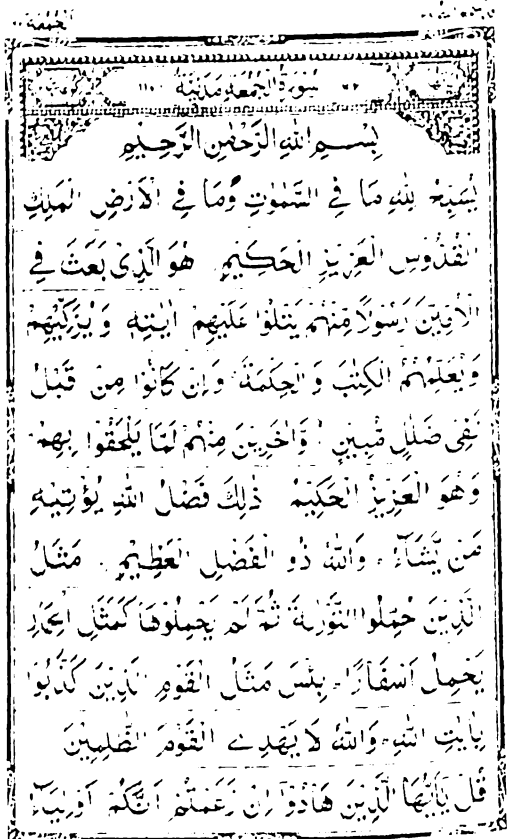 الجمعة
سُورَةُ الْجُمُعَةِ مَدَنِيَّةٌ
بِسْمِ اللهِ الرَّحْمٰنِ الرَّحِيْمِ
يُسَبِّحُ لِلّٰهِ مَا فِي السَّمٰوٰتِ وَمَا فِي الْاَرْضِ الْمَلِكِ
الْقُدُّوْسِ الْعَزِيْزِ الْحَكِيْمِ هُوَ الَّذِيْ بَعَثَ فِي
الْاُمِّيّٖنَ رَسُوْلًا مِّنْهُمْ يَتْلُوْا عَلَيْهِمْ اٰيٰتِهٖ وَيُزَكِّيْهِمْ
وَيُعَلِّمُهُمُ الْكِتٰبَ وَالْحِكْمَةَ وَاِنْ كَانُوْا مِنْ قَبْلُ
لَفِيْ ضَلٰلٍ مُّبِيْنٍ وَّاٰخَرِيْنَ مِنْهُمْ لَمَّا يَلْحَقُوْا بِهِمْ
وَهُوَ الْعَزِيْزُ الْحَكِيْمُ ذٰلِكَ فَضْلُ اللهِ يُؤْتِيْهِ
مَنْ يَّشَآءُ وَاللهُ ذُو الْفَضْلِ الْعَظِيْمِ مَثَلُ
الَّذِيْنَ حُمِّلُوا التَّوْرٰىةَ ثُمَّ لَمْ يَحْمِلُوْهَا كَمَثَلِ الْحِمَارِ
يَحْمِلُ اَسْفَارًا بِئْسَ مَثَلُ الْقَوْمِ الَّذِيْنَ كَذَّبُوْا
بِاٰيٰتِ اللهِ وَاللهُ لَا يَهْدِي الْقَوْمَ الظّٰلِمِيْنَ
قُلْ يٰٓاَيُّهَا الَّذِيْنَ هَادُوْٓا اِنْ زَعَمْتُمْ اَنَّكُمْ اَوْلِيَآءُ